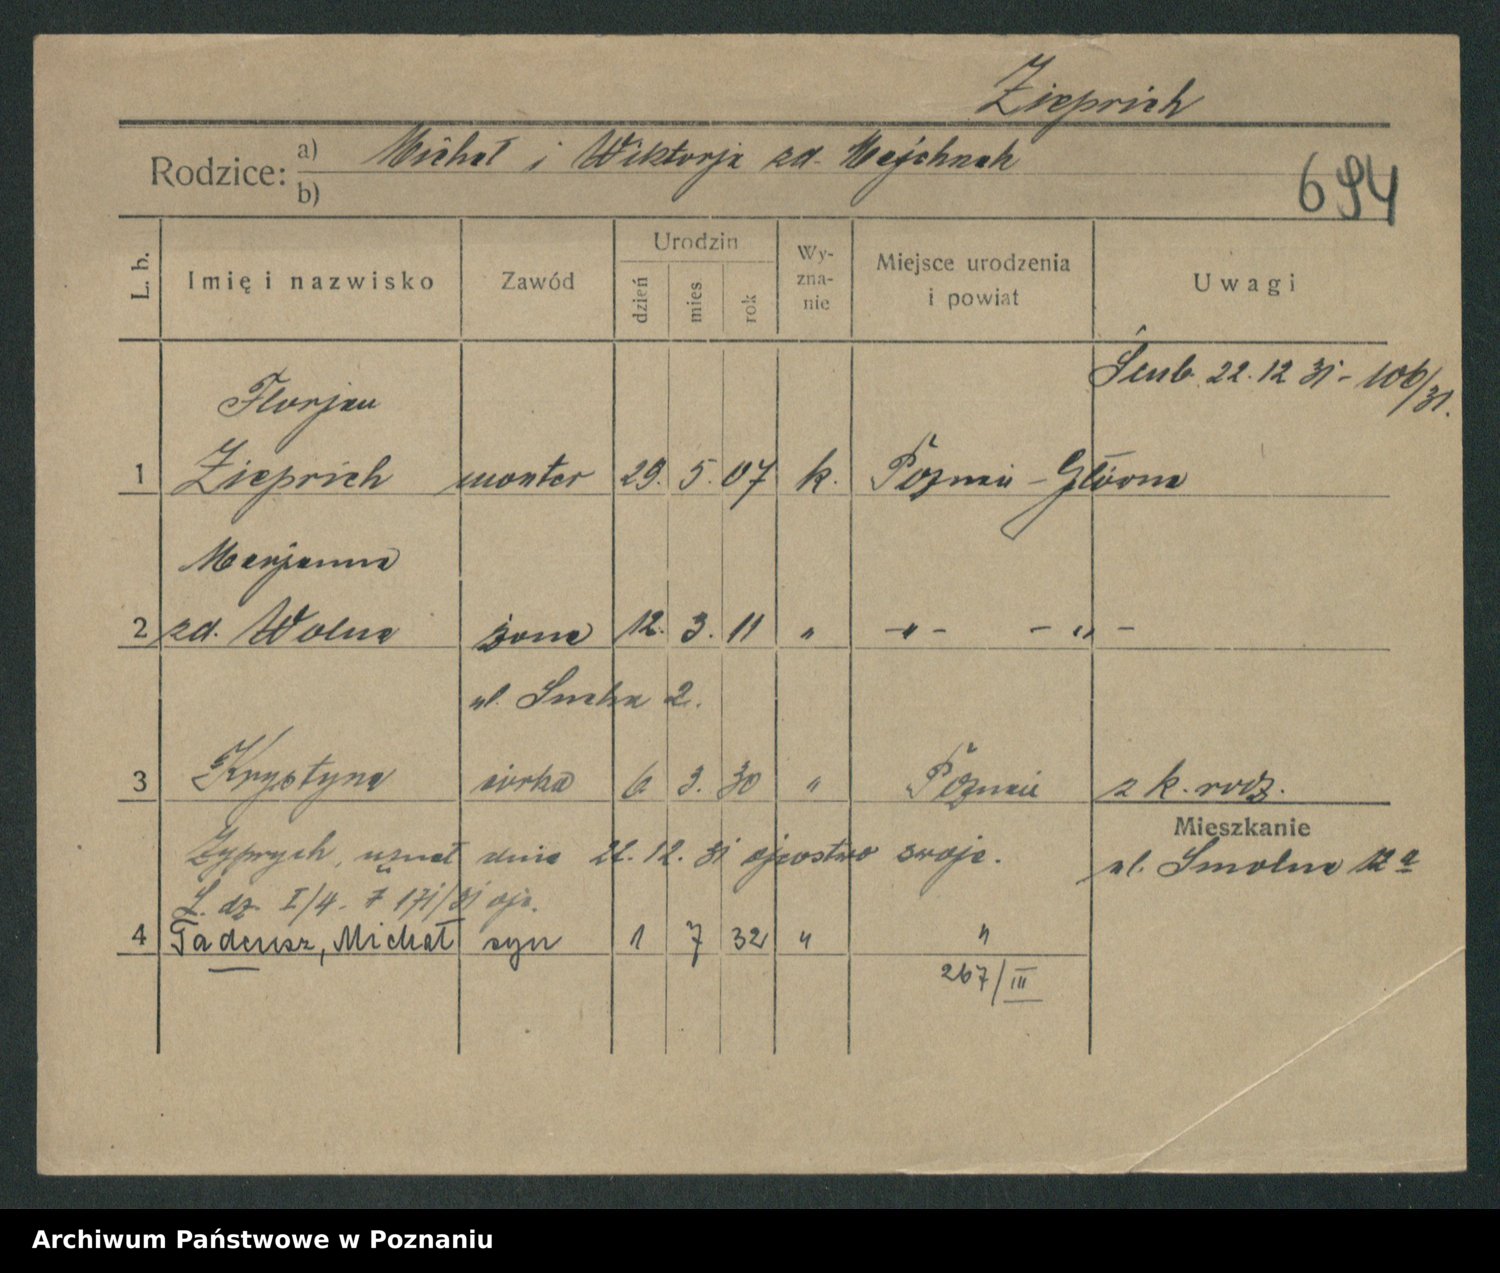 Zieprich
Rodzice: a) Michał i Wiktorja zd. Majchrzak
b)
694
L. b. Imię i nazwisko Zawód Urodzin dzień mies rok Wy-zna-nie Miejsce urodzenia i powiat Uwagi
Ślub 22.12 31 - 106/31.
Florjan
1 Zieprich monter 29. 5. 07 k. Poznań - Główna
Marjanna
2 zd. Wolna żona 12. 3. 11 " - " - - " -
ul. Sucha 2.
3 Krystyna córka 6. 3. 30 " Poznań z k. rodz.
Mieszkanie
Zyprych, uznał dnia 22. 12. 31 ojcostwo swoje.
ul. Smolna 12a
L. dz. I/4 - Z 171/31
4 Tadeusz, Michał syn 1 7 32 " "
267/III
Archiwum Państwowe w Poznaniu